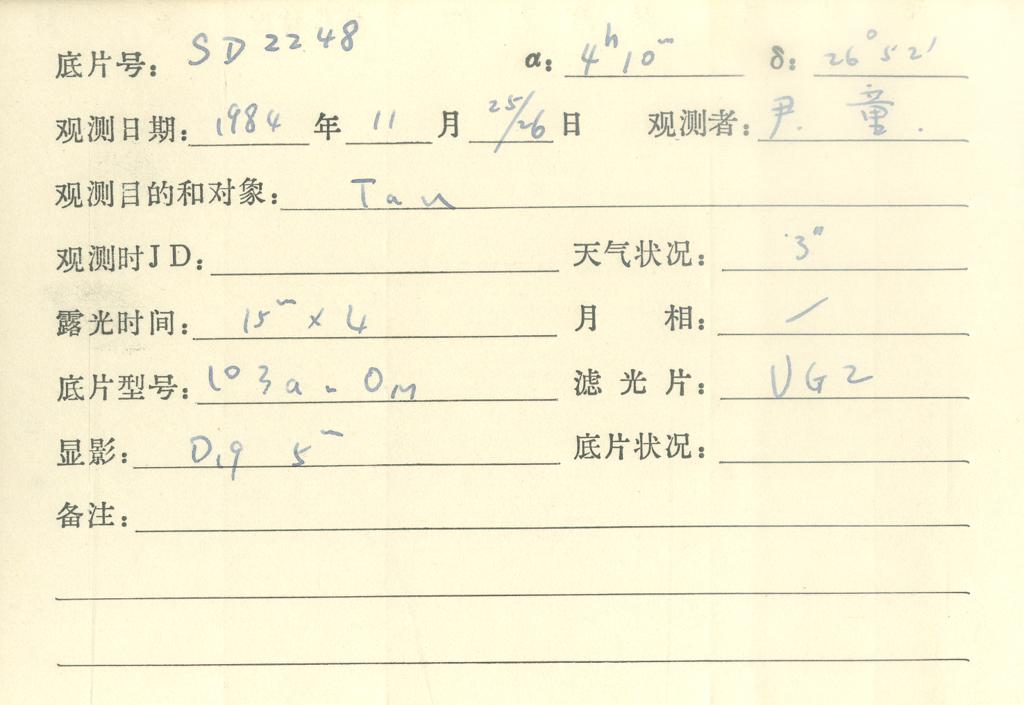 底片号: SD2248 α: 4ʰ10ᵐ δ: 26°52′
观测日期: 1984 年 11 月 25/26 日 观测者: 尹. 童.
观测目的和对象: Tau
观测时JD: 天气状况: 3″
露光时间: 15ᵐ×4 月相: /
底片型号: 103a-O 滤光片: UG2
显影: D19 5ᵐ 底片状况:
备注: